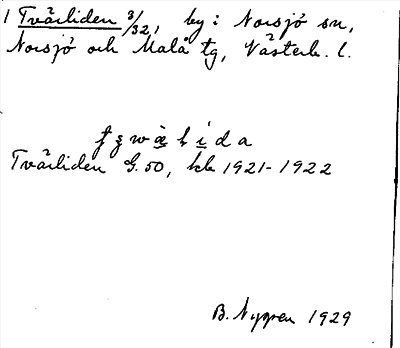 1 Tvärliden 3/32, by i Norsjö sn,
Norsjö och Malå tg, Västerb. l.
Tvärliden G.50, kb 1921-1922
B. Nygren 1929